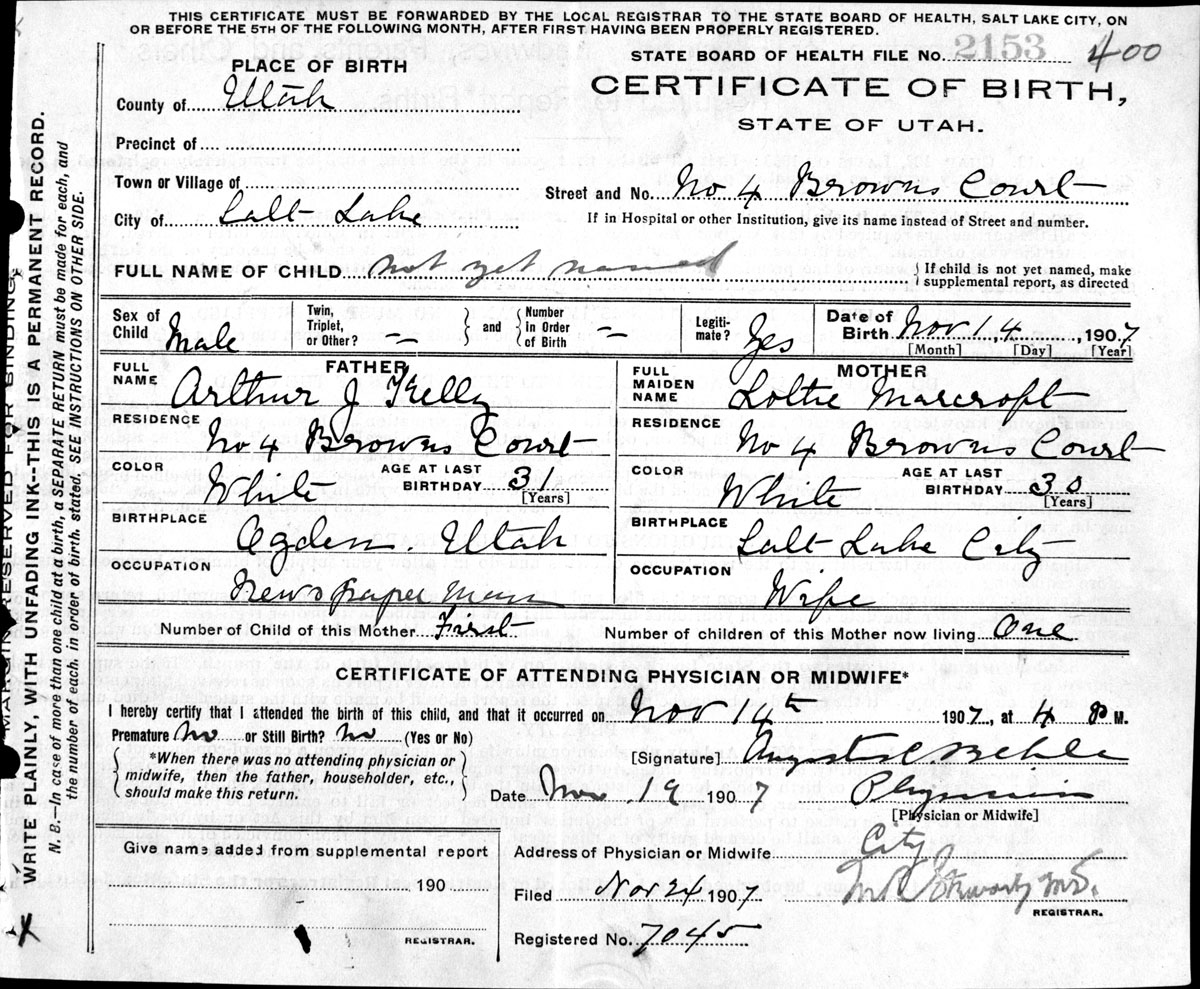 THIS CERTIFICATE MUST BE FORWARDED BY THE LOCAL REGISTRAR TO THE STATE BOARD OF HEALTH, SALT LAKE CITY, ON
OR BEFORE THE 5TH OF THE FOLLOWING MONTH, AFTER FIRST HAVING BEEN PROPERLY REGISTERED.
STATE BOARD OF HEALTH FILE NO. 2153 400
PLACE OF BIRTH
CERTIFICATE OF BIRTH,
STATE OF UTAH.
County of Utah
Precinct of
Town or Village of
Street and No. No 4 Browns Court
City of Salt Lake
If in Hospital or other Institution, give its name instead of Street and number.
FULL NAME OF CHILD not yet named
{ If child is not yet named, make
supplemental report, as directed
Sex of Child Male
Twin, Triplet, or Other? —
and
Number in Order of Birth —
Legiti-mate? Yes
Date of Birth Nov 14, 1907
[Month] [Day] [Year]
FATHER
FULL NAME Arthur J Kelly
RESIDENCE No 4 Browns Court
COLOR White
AGE AT LAST BIRTHDAY 31
[Years]
BIRTHPLACE Ogden. Utah
OCCUPATION Newspaper Man
MOTHER
FULL MAIDEN NAME Lottie Marcroft
RESIDENCE No 4 Browns Court
COLOR White
AGE AT LAST BIRTHDAY 30
[Years]
BIRTHPLACE Salt Lake City
OCCUPATION Wife
Number of Child of this Mother First
Number of children of this Mother now living One
CERTIFICATE OF ATTENDING PHYSICIAN OR MIDWIFE*
I hereby certify that I attended the birth of this child, and that it occurred on Nov 14th 1907, at 4 P M.
Premature No or Still Birth? No (Yes or No)
*When there was no attending physician or
midwife, then the father, householder, etc.,
should make this return.
[Signature] August C Behle
Date Nov. 19 1907 Physician
[Physician or Midwife]
Give name added from supplemental report
190
REGISTRAR.
Address of Physician or Midwife City
Filed Nov 24 1907
REGISTRAR.
Registered No. 7045
MARGIN RESERVED FOR BINDING
WRITE PLAINLY, WITH UNFADING INK--THIS IS A PERMANENT RECORD.
N. B.—In case of more than one child at a birth, a SEPARATE RETURN must be made for each, and
the number of each, in order of birth, stated. SEE INSTRUCTIONS ON OTHER SIDE.